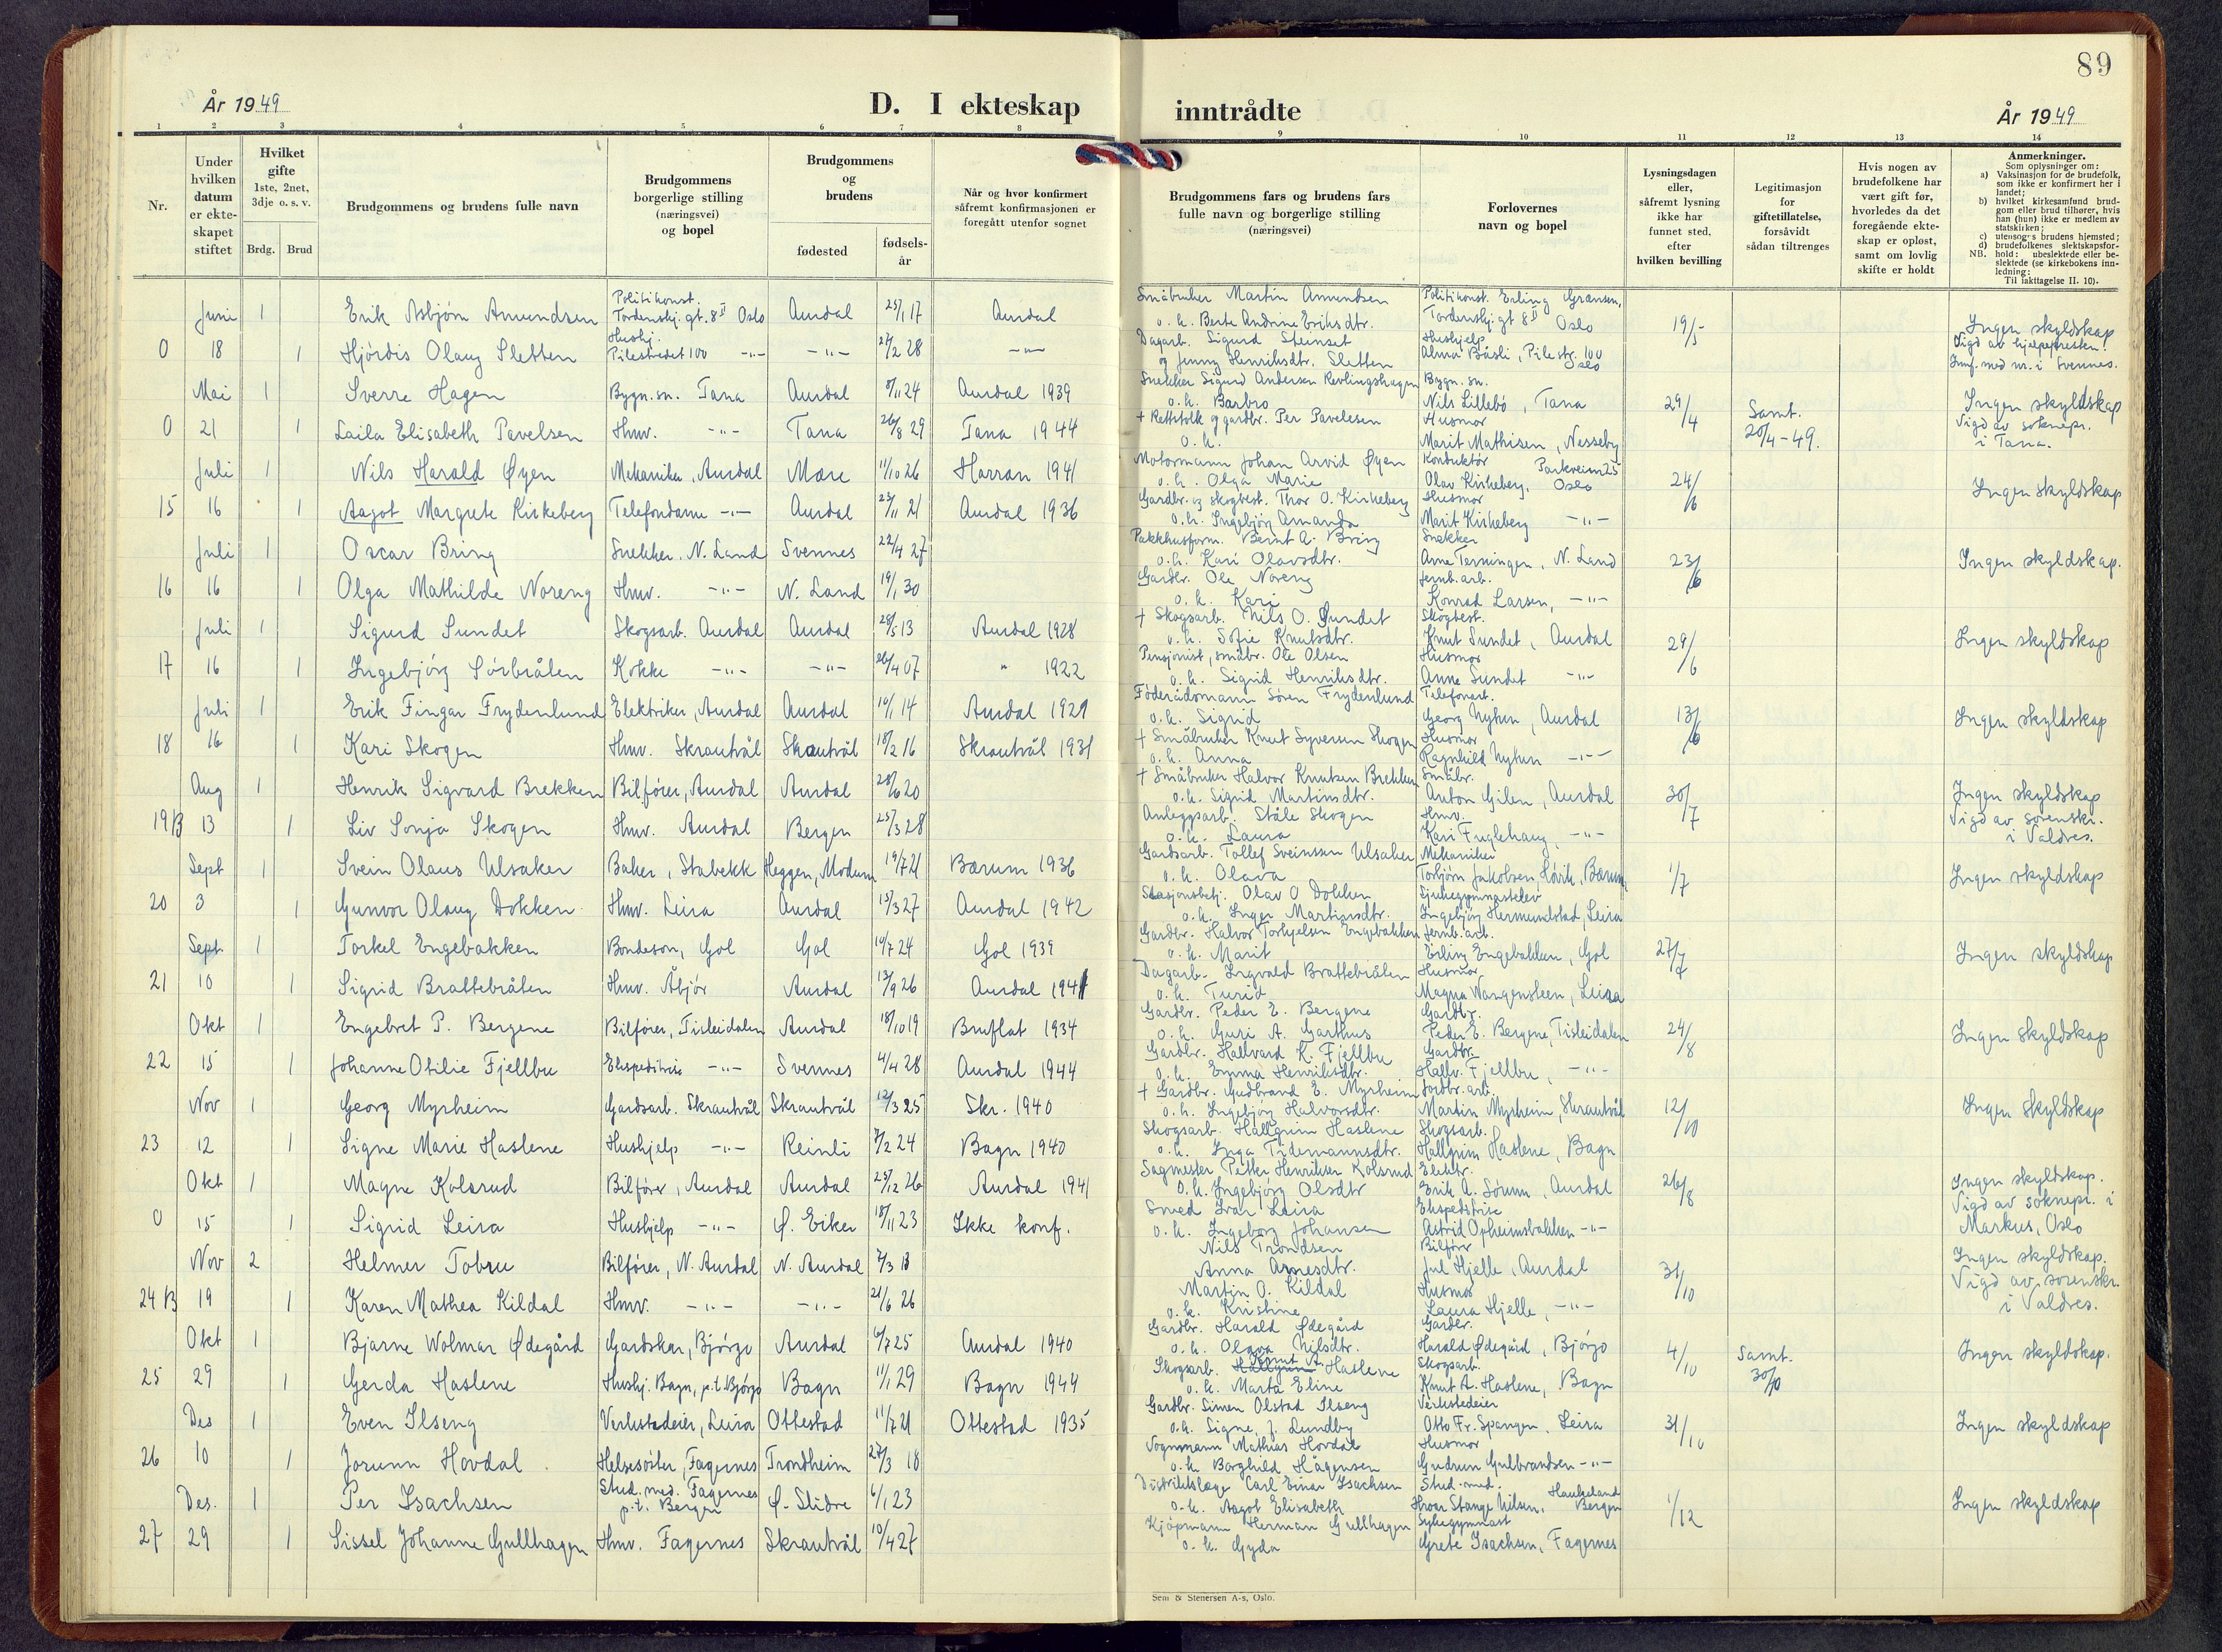 89
År 1949
D. I ekteskap
inntrådte
År 1949
1 2 3 4 5 6 7 8 9 10 11 12 13 14
Nr.
Under hvilken datum er ekte-skapet stiftet
Hvilket gifte
1ste, 2net, 3dje o. s. v.
Brdg. Brud
Brudgommens og brudens fulle navn
Brudgommens borgerlige stilling (næringsvei) og bopel
Brudgommens og brudens
fødested
fødsels-år
Når og hvor konfirmert såfremt konfirmasjonen er foregått utenfor sognet
Brudgommens fars og brudens fars fulle navn og borgerlige stilling (næringsvei)
Forlovernes navn og bopel
Lysningsdagen eller, såfremt lysning ikke har funnet sted, efter hvilken bevilling
Legitimasjon for giftetillatelse, forsåvidt sådan tiltrenges
Hvis nogen av brudefolkene har vært gift før, hvorledes da det foregående ekte-skap er opløst, samt om lovlig skifte er holdt
Anmerkninger.
Som oplysninger om:
a) Vaksinasjon for de brudefolk, som ikke er konfirmert her i landet;
b) hvilket kirkesamfund brud-gom eller brud tilhører, hvis han (hun) ikke er medlem av statskirken;
c) utensogns brudens hjemsted;
d) brudefolkenes slektskapsfor-hold: ubeslektede eller be-slektede (se kirkebokens inn-ledning;
NB. Til iakttagelse II. 10).
Juni 1 Erik Asbjørn Amundsen Politikonst. Tordenskj. gt. 8 II Oslo Aurdal 25/1 17 Aurdal Småbruker Martin Amundsen o. h. Berte Andrine Eriksdtr. Politikonst. Erling Gransen, Tordenskj. gt 8 II Oslo 19/5 Ingen skyldskap
0 18 1 Hjördis Olaug Sletten Hushj. Pilestredet 100 -"- -"- 27/2 28 -"- Dagarb. Sigurd Steinset og Jenny Henriksdtr. Sletten Hushjelp Alma Båsli, Pilestr. 100 Oslo Vigd av hjelpepresten. Innf. med nr. i Svennes.
Mai 1 Sverre Hagen Bygn.sn. Tana Aurdal 8/11 24 Aurdal 1939 Snekker Sigurd Andersen Revlingshagen o. h. Barbro Bygn. sn. Nils Lillebö, Tana 29/4 Samt. 20/4-49. Ingen skyldskap
0 21 1 Laila Elisabeth Pavelsen Hmv. -"- Tana 26/8 29 Tana 1944 + Rettstolk og gardbr. Per Pavelsen o. h. Husmor Marit Mathisen, Nesseby Vigd av soknepr. i Tana.
Juli 1 Nils Harald Øyen Mekaniker, Aurdal Mære 11/10 26 Harran 1941 Motormann Johan Arvid Øyen o. h. Olga Marie Konduktör Olav Kirkeberg, Parkveien 25 Oslo 24/6 Ingen skyldskap
15 16 1 Aagot Margrete Kirkeberg Telefondame -"- Aurdal 23/11 21 Aurdal 1936 Gardbr. og skogbest. Thor O. Kirkeberg o. h. Ingebjörg Amanda Husmor Marit Kirkeberg -"-
Juli 1 Oscar Bring Snekker. N. Land Svennes 22/4 27 Pakkhusform. Bernt A. Bring o. h. Kari Olavsdtr. Snekker Arne Terningen, N. Land 23/6 Ingen skyldskap.
16 16 1 Olga Mathilde Noreng Hmv. -"- N. Land 19/1 30 Gardbr. Ole Noreng o. h. Kari Jernb. arb. Konrad Larsen, -"-
Juli 1 Sigurd Sundet Skogsarb. Aurdal Aurdal 28/5 13 Aurdal 1928 + Skogsarb. Nils O. Sundet o. h. Sofie Knutsdtr. Skogbest. Knut Sundet, Aurdal 29/6 Ingen skyldskap
17 16 1 Ingebjörg Sörbråten Kokke -"- -"- 26/4 07 " 1922 Pensjonist, småbr. Ole Olsen o. h. Sigrid Henriksdtr. Husmor Anne Sundet -"-
Juli 1 Erik Fingar Frydenlund Elektriker, Aurdal Aurdal 14/1 14 Aurdal 1929 Föderådsmann Sören Frydenlund o. h. Sigrid Telefonarb. Georg Nyhun, Aurdal 13/6 Ingen skyldskap
18 16 1 Kari Skogen Hmv. Skrautvål Skrautvål 18/2 16 Skrautvål 1931 + Småbruker Knut Syversen Skogen o. h. Anna Husmor Ragnhild Nyhun -"-
Aug 1 Henrik Sigvard Brekken Bilförer, Aurdal Aurdal 28/6 20 + Småbruker Halvor Knutsen Brekken o. h. Sigrid Martinsdtr. Småbr. Anton Gilen, Aurdal 30/7 Ingen skyldskap
19 B 13 1 Liv Sonja Skogen Hmv. Aurdal Bergen 25/3 28 Anleggsarb. Ståle Skogen o. h. Laura Hmv. Kari Fuglehaug, -"- Vigd av sorenskr. i Valdres.
Sept 1 Svein Olaus Ulsaker Baker, Stabekk Heggen, Modum 19/7 21 Bærum 1936 Gardsarb. Tollef Sveinssen Ulsaker o. h. Olava Mekaniker Torbjörn Jakobsen, Lövik, Bærum 1/7 Ingen skyldskap
20 3 1 Gunvor Olaug Dokken Hmv. Leira Aurdal 15/3 27 Aurdal 1942 Stasjonsbetj. Olav O Dokken o. h. Inger Martinsdtr. Sjukegymnastelev Ingebjörg Hermundstad, Leira
Sept. 1 Torkel Engebakken Bondeson, Gol Gol 14/7 24 Gol 1939 Gardbr. Halvor Torkjelsen Engebakken o. h. Marit Jernb. arb. Erling Engebakken, Gol 27/7 Ingen skyldskap
21 10 1 Sigrid Brattebråten Hmv. Åbjör Aurdal 13/9 26 Aurdal 1941 Dagarb. Ingvald Brattebråten o. h. Turid Husmor Magna Wangensteen, Leira
Okt 1 Engebret P. Bergene Bilförer, Tisleidalen Aurdal 18/10 19 Bruflat 1934 Gardbr. Peder E. Bergene o. h. Guri A. Garthus Gardbr. Peder E. Bergene, Tisleidalen 24/8 Ingen skyldskap
22 15 1 Johanne Otilie Fjellbu Ekspeditrise -"- Svennes 4/4 28 Aurdal 1944 Gardbr. Hallvard K. Fjellbu o. h. Emma Henriksdtr. Gardbr. Hallv. Fjellbu, -"-
Nov 1 Georg Myrheim Gardsarb. Skrautvål Skrautvål 12/3 25 Skr. 1940 + Gardbr. Gudbrand E. Myrheim o. h. Ingebjörg Halvorsdtr. Jordbr. arb. Martin Myrheim, Skrautvål 12/10 Ingen skyldskap
23 12 1 Signe Marie Haslene Hushjelp -"- Reinli 7/2 24 Bagn 1940 Skogsarb. Hallgrim Haslene o. h. Inga Tidemannsdtr. Skogsarb. Hallgrim Haslene, Bagn
Okt 1 Magne Kolsrud Bilförer, Aurdal Aurdal 25/12 26 Aurdal 1941 Sagmester Petter Henriksen Kolsrud o. h. Ingebjörg Olsdtr Elektr. Erik A. Sörum, Aurdal 26/8 Ingen skyldskap.
0 15 1 Sigrid Leira Hushjelp -"- Ø. Eiker 18/11 23 Ikke konf. Smed Ivar Leira o. h. Ingeborg Johansen Ekspeditrise Astrid Opheimsbakken -"- Vigd av soknepr. i Markus, Oslo
Nov 2 Helmer Tobru Bilförer, N. Aurdal N. Aurdal 7/3 13 Nils Trondsen Anna Arnesdtr. Bilförer Jul Hjelle, Aurdal 31/10 Ingen skyldskap.
24 B 19 1 Karen Mathea Kildal Hmv. -"- -"- 21/6 26 Martin O. Kildal o. h. Kristine Husmor Laura Hjelle, -"- Vigd av sorenskr. i Valdres.
Okt 1 Bjarne Wolmar Ødegård Gardskar, Bjørgo Aurdal 6/7 25 Aurdal 1940 Gardbr. Harald Ødegård o. h. Olava Nilsdtr. Gardbr. Harald Ødegård, Bjørgo 4/10 Samt. 30/10 Ingen skyldskap.
25 29 1 Gerda Haslene Hushj. Bagn, p.t. Bjørgo Bagn 11/1 29 Bagn 1944 Skogsarb. Knut A Haslene o. h. Marta Eline Skogsarb. Knut A. Haslene, Bagn
Des 1 Even Ilseng Verkstedeier, Leira Ottestad 11/7 21 Ottestad 1935 Gardbr. Simen Olstad Ilseng o. h. Signe, f. Lundby Verkstedeier Otto Fr. Spangen. Leira 31/10 Ingen skyldskap
26 10 1 Jorunn Hovdal. Helsesöster, Fagernes Trondheim 27/3 18 Vognmann Mathias Hovdal o. h. Borghild Hågensen Husmor Gudrun Gulbrandsen -"-
Des. 1 Per Isachsen Stud. med. Fagernes p.t. Bergen Ø. Slidre 6/1 23 Distriktslæge Carl Einar Isachsen o. h. Aagot Elisabeth Stud. med. Hroar Stange Nilsen, Haukeland Bergen 1/12 Ingen skyldskap
27 29 1 Sissel Johanne Gullhagen Hmv. Fagernes Skrautvål 10/4 27 Kjöpmann Herman Gullhagen o. h. Gyda Sykegymnast Grete Isachsen, Fagernes
Sem & Stenersen A-s, Oslo.